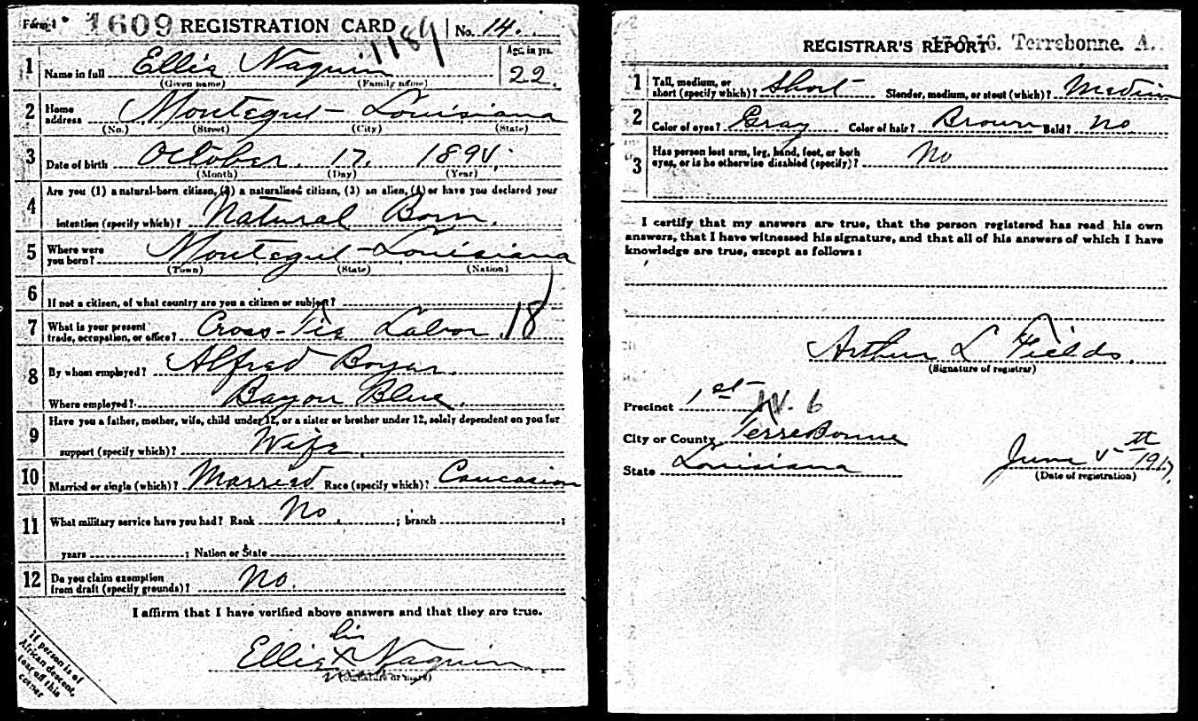 Form 1 1609 REGISTRATION CARD No. 14.
1189
1 Name in full Ellis Naquin Age, in yrs. 22.
(Given name) (Family name)
2 Home address Montegut - Louisiana
(No.) (Street) (City) (State)
3 Date of birth October. 17. 1894.
(Month) (Day) (Year)
4 Are you (1) a natural-born citizen, (2) a naturalized citizen, (3) an alien, (4) or have you declared your
intention (specify which)? Natural Born.
5 Where were you born? Montegut - Louisiana
(Town) (State) (Nation)
6 If not a citizen, of what country are you a citizen or subject?
7 What is your present trade, occupation, or office? Cross-Tie Labor. 18
8 By whom employed? Alfred
Where employed? Bayou Blue.
9 Have you a father, mother, wife, child under 12, or a sister or brother under 12, solely dependent on you for
support (specify which)? Wife.
10 Married or single (which)? Married Race (specify which)? Caucasion
11 What military service have you had? Rank No. ; branch ;
years ; Nation or State
12 Do you claim exemption from draft (specify grounds)? No.
I affirm that I have verified above answers and that they are true.
his
Ellis x Naquin
(Signature or mark)
If person is of
African descent,
tear off this
corner
REGISTRAR'S REPORT Terrebonne. A.
1 Tall, medium, or short (specify which)? Short Slender, medium, or stout (which)? Medium
2 Color of eyes? Gray Color of hair? Brown Bald? No
3 Has person lost arm, leg, hand, foot, or both eyes, or is he otherwise disabled (specify)? No
I certify that my answers are true, that the person registered has read his own
answers, that I have witnessed his signature, and that all of his answers of which I have
knowledge are true, except as follows:
Arthur L Fields.
(Signature of registrar)
Precinct 1st W. 6
City or County Terrebonne
State Louisiana
June 5th 1917.
(Date of registration)